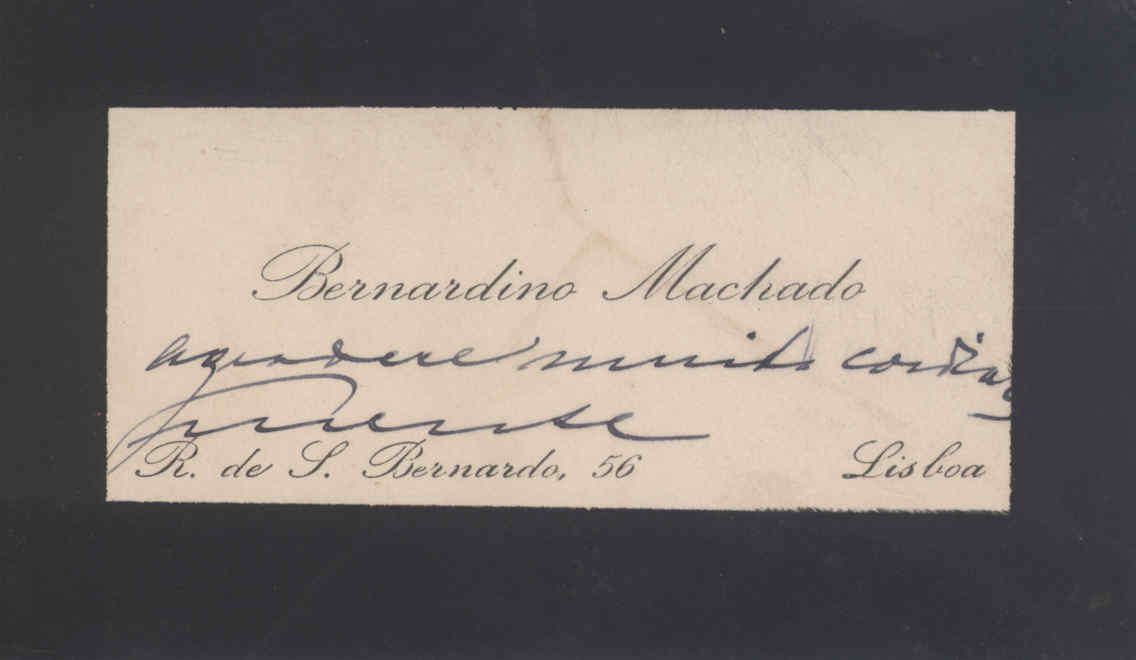 Bernardino Machado
agradece muito cordial
mente
R. de S. Bernardo, 56 Lisboa